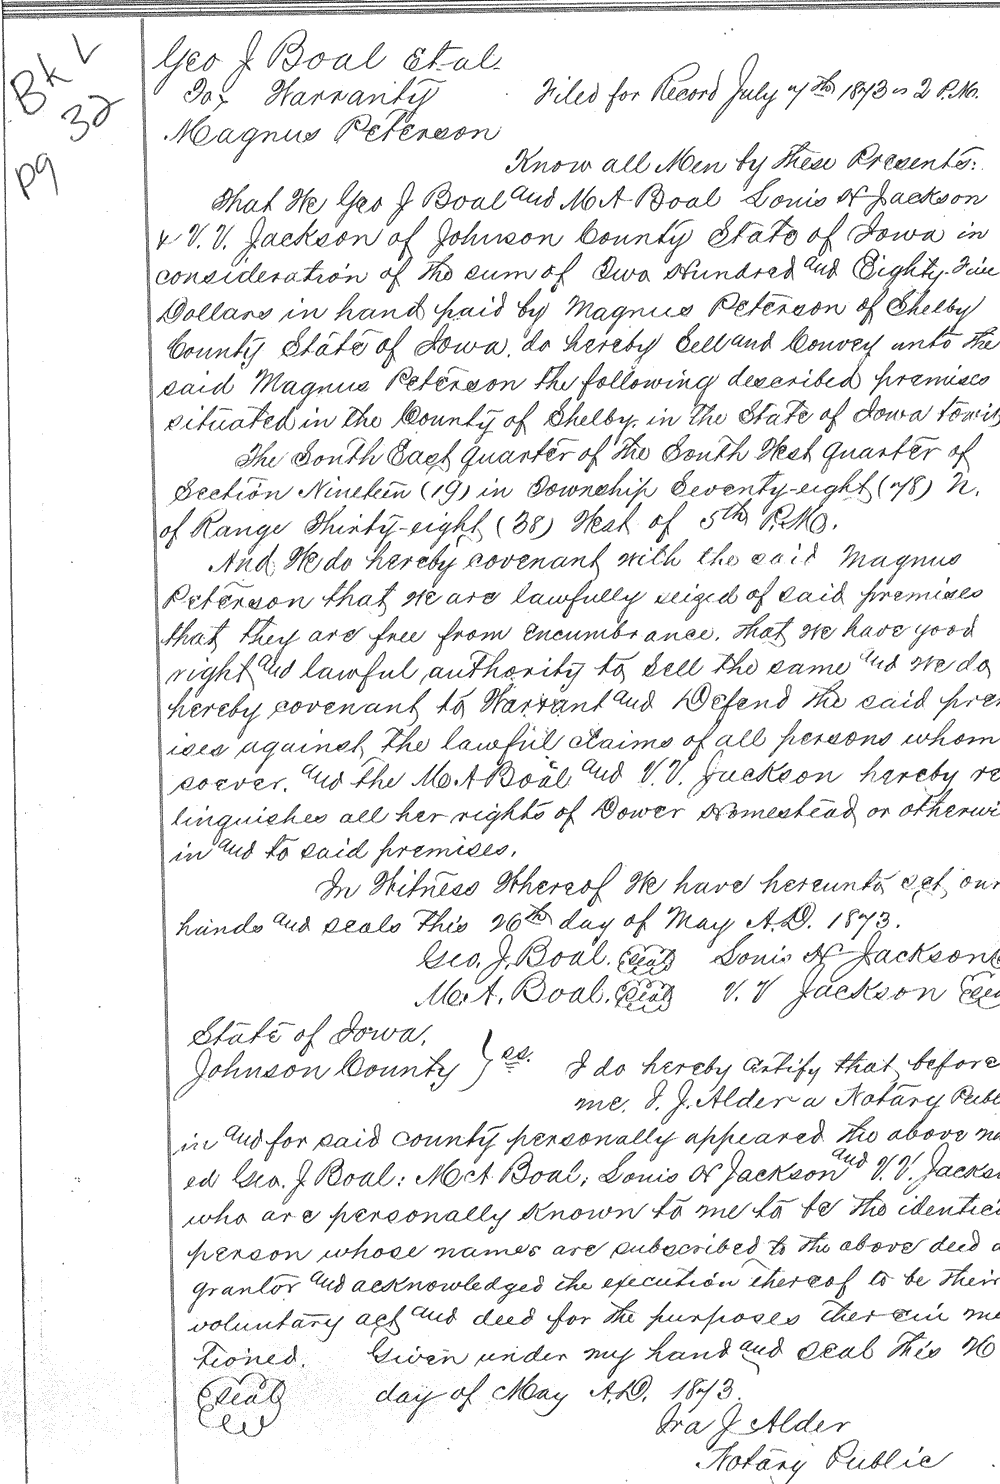 Bk L
pg 32
Geo J Boal et-al.
To, Warranty Filed for Record July 7th 1873 2 P.M.
Magnus Peterson
Know all Men by these Presents:
That We Geo J Boal and M A Boal Louis H Jackson
& V. V. Jackson of Johnson County State of Iowa in
consideration of the sum of Two Hundred and Eighty-Five
Dollars in hand paid by Magnus Peterson of Shelby
County State of Iowa, do hereby Sell and Convey unto the
said Magnus Peterson the following described premises
situated in the County of Shelby. in the State of Iowa towit
The South East quarter of the South West quarter of
Section Nineteen (19) in Township Seventy-eight (78) N.
of Range Thirty-eight (38) West of 5th P.M.
And We do hereby covenant with the said Magnus
Peterson that we are lawfully seized of said premises
that they are free from encumbrance. that we have good
right and lawful authority to sell the same and we do
hereby covenant to Warrant and Defend the said prem
ises against the lawful claims of all persons whom
soever. and the M. A Boal and V. V. Jackson hereby re
linguishes all her rights of Dower Homestead or otherwi
in and to said premises.
In Witness Whereof We have hereunto set our
hands and seals this 26th day of May A.D. 1873.
Geo. J. Boal. (seal) Louis H Jackson
M. A. Boal. (seal) V. V Jackson (sea
State of Iowa.
Johnson County } ss. I do hereby certify that before
me. I. J. Alder a Notary Publ
in and for said county personally appeared the above na
ed Geo. J Boal: M A Boal; Louis H Jackson and V. V. Jacks
who are personally known to me to be the identic
person whose names are subscribed to the above deed a
grantor and acknowledged the execution thereof to be their
voluntary act and deed for the purposes therein me
tioned. Given under my hand and seal this 26
(seal) day of May A.D. 1873.
Ira J Alder
Notary Public